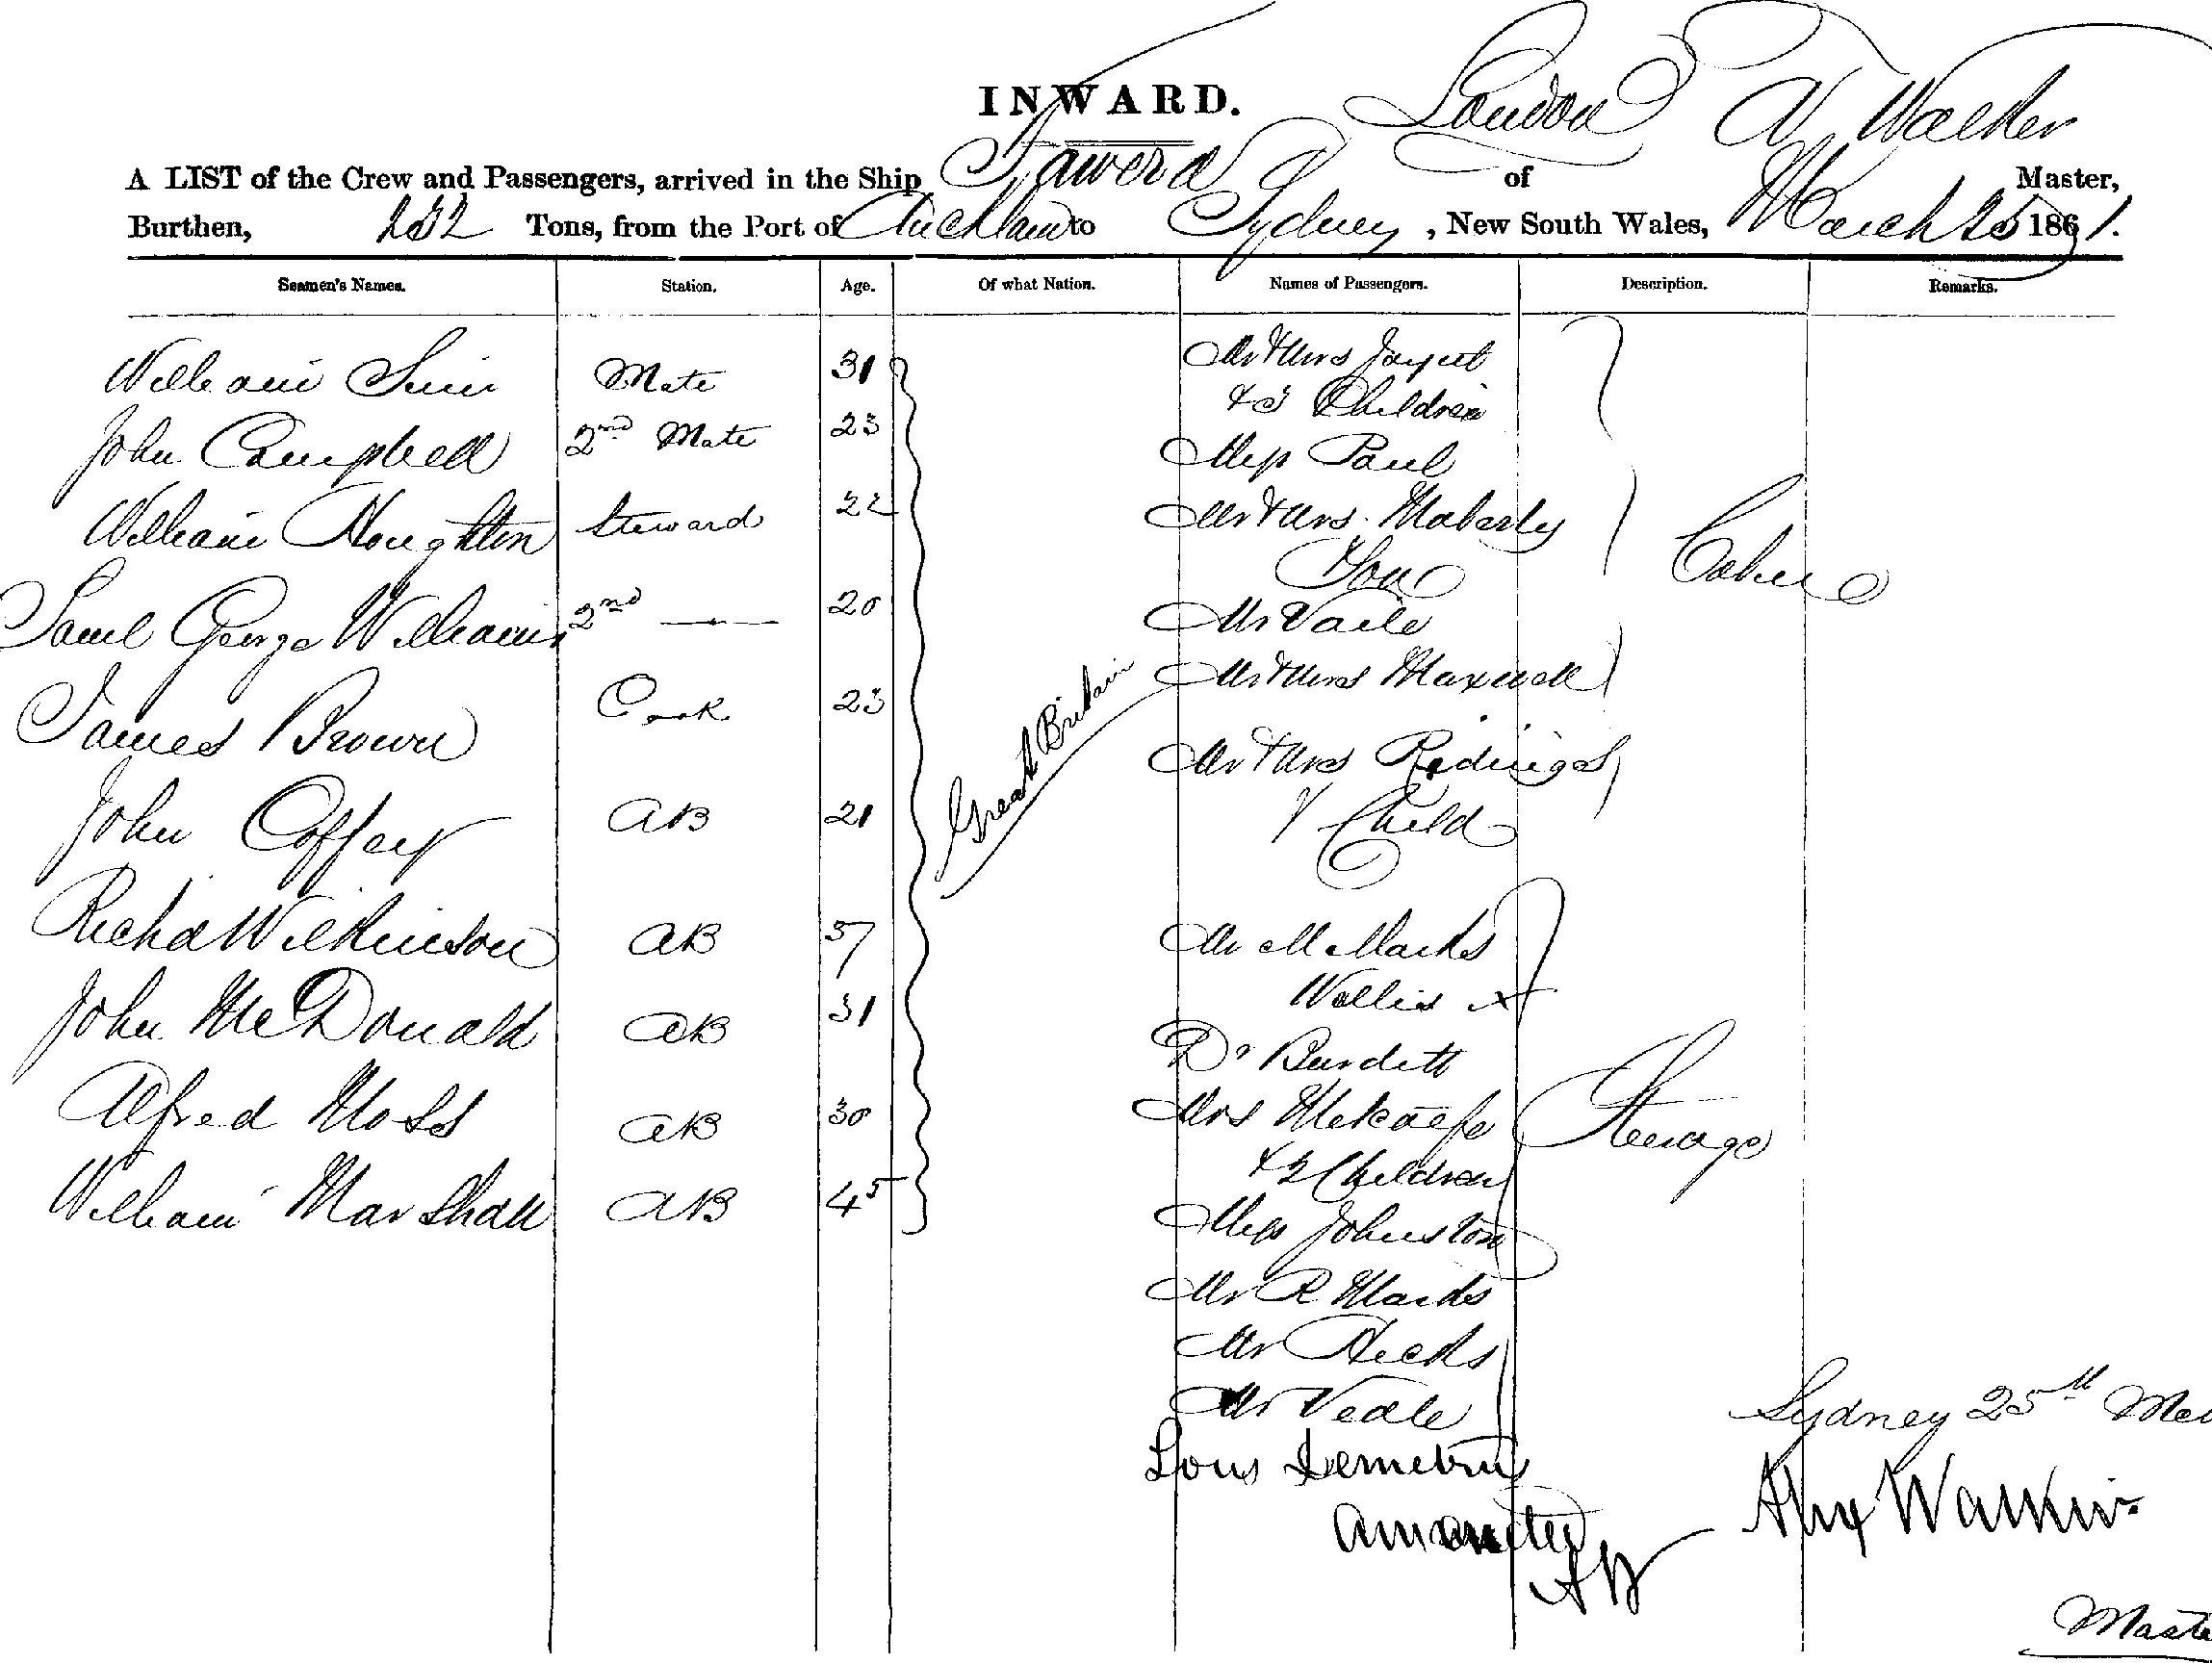 INWARD.
London A Walker
A LIST of the Crew and Passengers, arrived in the Ship Fawera of Master,
Burthen, 232 Tons, from the Port of Auckland to Sydney, New South Wales, March 25 1861.
Seamen's Names. Station. Age. Of what Nation. Names of Passengers. Description. Remarks.
William Mate 31 Mr & Mrs
& 3 Children
John Campbell 2nd Mate 23 Miss Paul
William Houghton Steward 22 Mr & Mrs. Moberly
Cabin
Saml George Williams 2nd — 20 Mr Vaile
Great Britain Mr & Mrs Maxwell
James Brown Cook 23 Mr & Mrs Ridings
John Coffey AB 21 & Child
Richd Wilkinson AB 37 Mr M Marks
Wallis
John McDonald AB 31 Dr Burdett
Alfred Moss AB 30 Mrs Mekaefe Steerage
& 2 Children
William Marshall AB 45 Miss Johnston
Mr R Marks
Mr Hicks
Mr Veale Sydney 25th
Demetrius
Alex Walker
AW
Maste